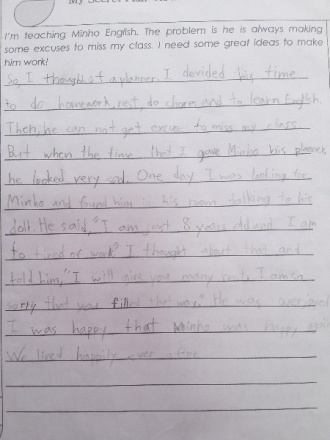 My Secret Plan
I'm teaching Minho English. The problem is he is always making
some excuses to miss my class. I need some great ideas to make
him work!
So, I thought of a planner. I devided his time
to do homework, rest, do chores and to learn English.
Then, he can not get excuse to miss my class.
But when the time that I gave Minho his planner
he looked very sad. One day I was looking for
Minho and found him in his room talking to his
doll. He said, "I am just 8 years old and I am
to tired of work." I thought about that and
told him, "I will give you many rests. I am so
sorry that you filled that way." He was
I was happy that Minho was happy
We lived happily ever after